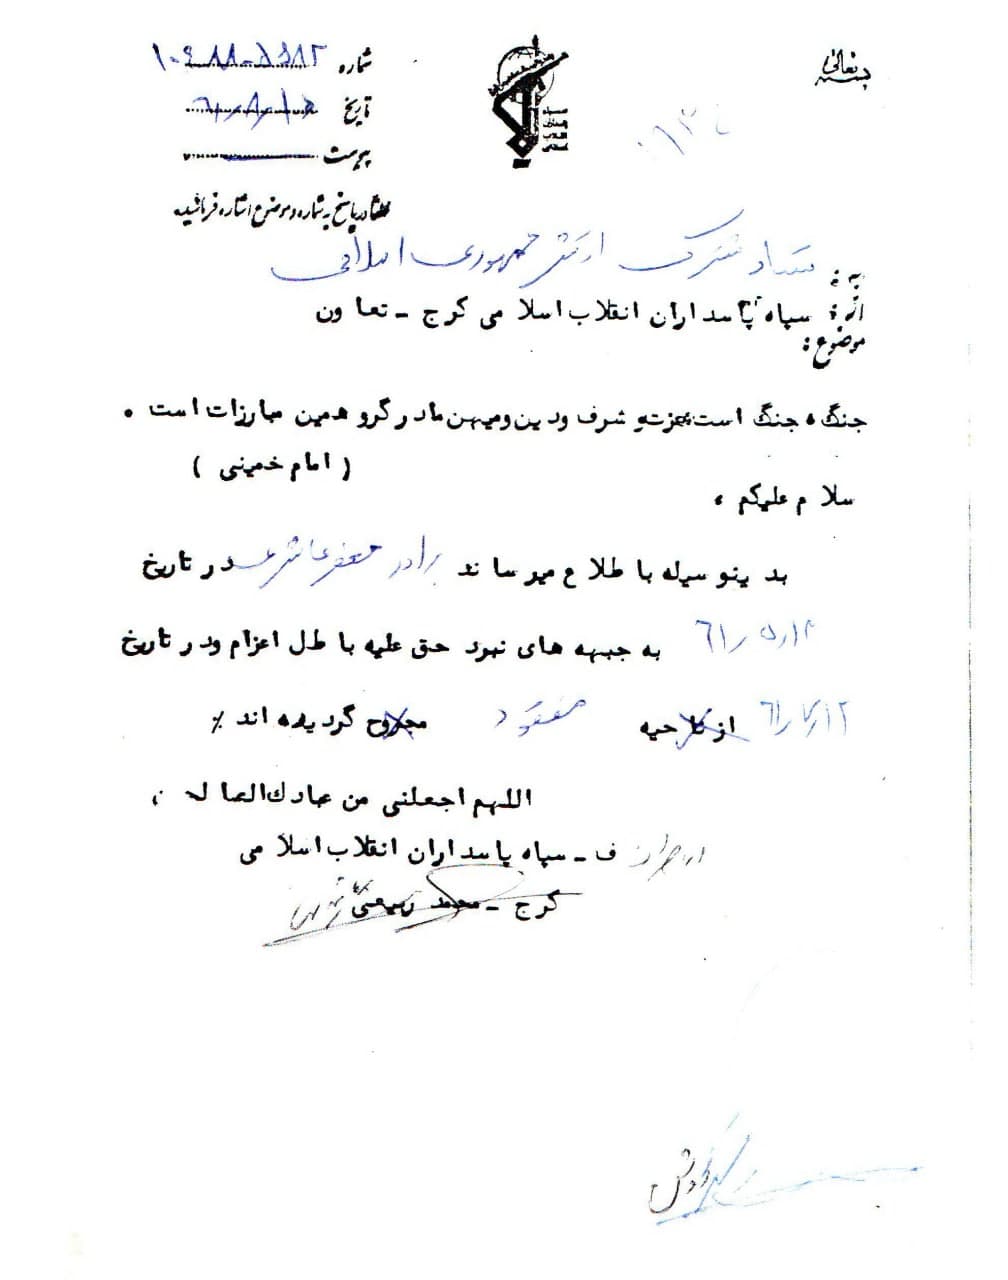 بسمه تعالی
شماره
تاریخ ۶۱/۸/۱۵
پیوست
لطفا در پاسخ به شماره و موضوع اشاره فرمائید
سپاه پاسداران انقلاب اسلامی
به : ستاد مشترک ارتش جمهوری اسلامی
از : سپاه پاسداران انقلاب اسلامی کرج - تعاون
موضوع :
جنگ ، جنگ است عزت و شرف و دین و میهن ما در گرو همین مبارزات است .
( امام خمینی )
سلام علیکم ،
بدینوسیله باطلاع میرساند برادر جعفر در تاریخ
۶۱/۵/۱۲ به جبهه های نبرد حق علیه باطل اعزام و در تاریخ
۶۱/۷/۱۲ از ناحیه مفقود مجروح گردیده اند ٪
اللهم اجعلنی من
ف - سپاه پاسداران انقلاب اسلامی
کرج - محمد ربیعی